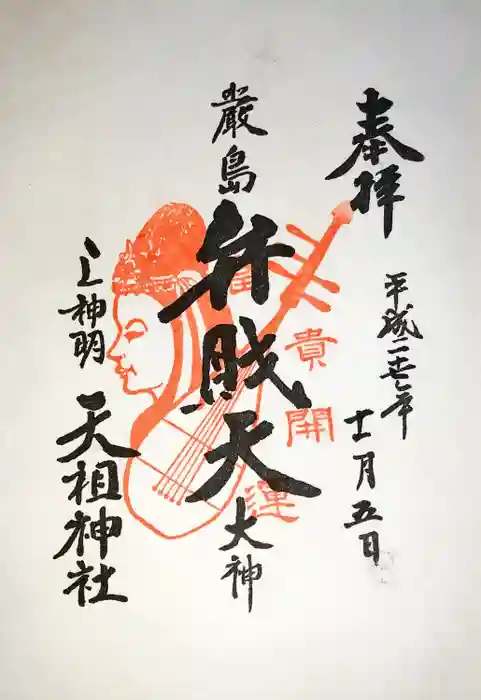 奉拝
平成二十七年
十一月五日
富貴開運
厳島
弁財天
大神
上神明
天祖神社